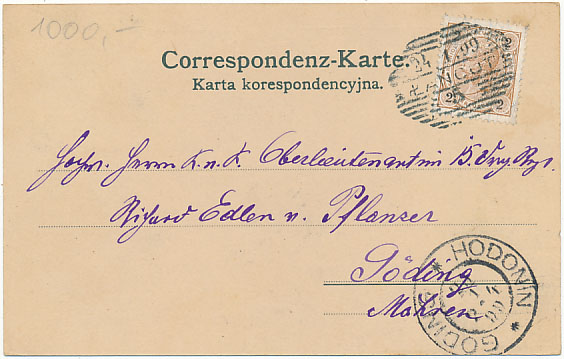 1000,-
Correspondenz-Karte.
Karta korespondencyjna.
24 1 99
ŁAŃCUT
2 2
Hochw. Herrn K. u. K. Oberlieutenant im 15. Drg. Rgt.
Richard Edlen v. Pflanzer
Göding
Mähren
* HODONIN * GÖDING